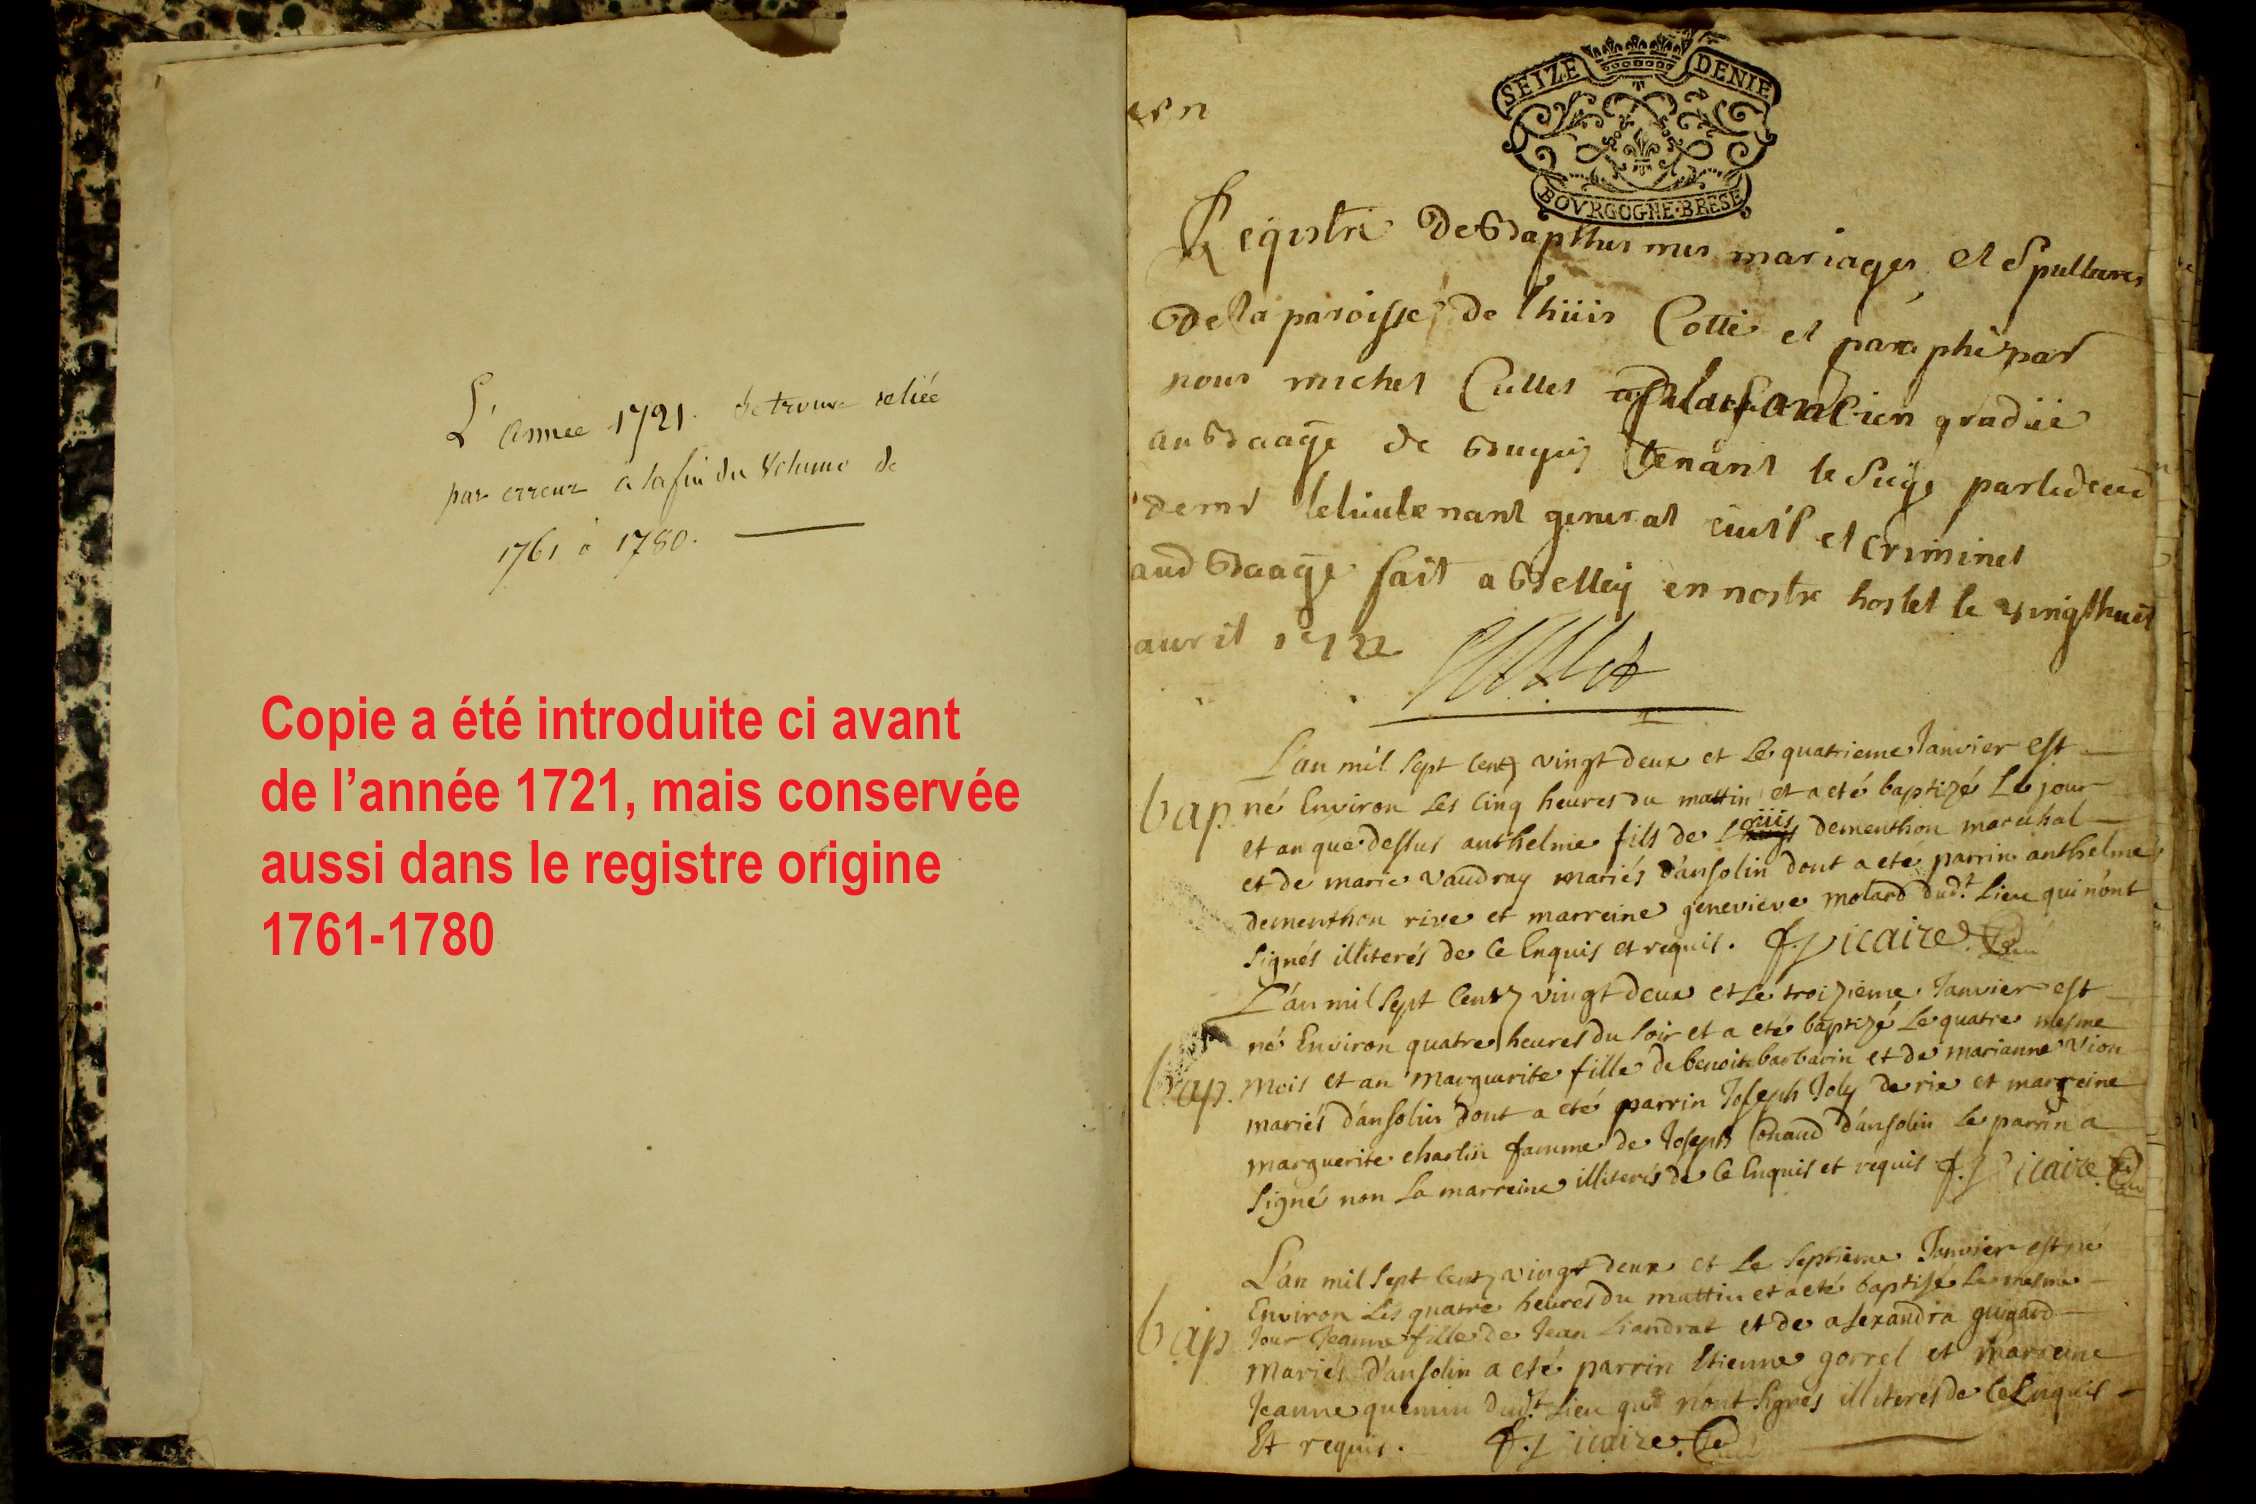 L'année 1721. se trouve reliée
par erreur à la fin du Volume de
1761 à 1780.
Copie a été introduite ci avant
de l’année 1721, mais conservée
aussi dans le registre origine
1761-1780
SEIZE DENIE
BOVRGOGNE·BRESE
Registre De Bapthesmes mariages et Spultures
De la paroisse de Lhüis Cotté et paraphé par
nous michel Cullet ancien gradüé
au Baage de Bugey tenant le Siege par
lelieutenant general ciuil et criminel
aud Baage fait a Belley en nostre hostel le vingthuit
auril 1722
L'an mil sept centz vingt deux et le quatrieme Janvier est
bap. né Environ les Cinq heures du mattin et a eté baptizé Le jour
et an que dessus anthelme fils de Loüis dementhon marechal
et de marie vaudray mariés d'ansolin dont a eté parrin anthelme
dementhon rive et marreine genevieve molard dud.t Lieu qui n'ont
signés illiterés de ce Enquis et requis. f. Vicaire
L'an mil sept centz vingt deux et Le troizieme Janvier est
né Environ quatre heures du soir et a eté baptizé Le quatre mesme
bap. mois et an marguerite fille de benoit barbarin et de marianne Vion
mariés d'ansolin dont a été parrin Joseph Joly de rie et marreine
marguerite charlin famme de Joseph d'ansolin Le parrin a
signé non La marreine illiterés de Ce Enquis et requis f. Vicaire
L'an mil sept centz vingt deux et Le septieme Janvier est né
Environ Les quatre heures du mattin et a eté baptisé Le mesme
bap. Jour Jeanne fille de Jean Liandrat et de alexandra guigard
mariés d'ansolin a eté parrin Etienne gorrel et marreine
Jeanne quemin dud.t Lieu qui n'ont signés illiterés de Ce Enquis
Et requis. f. Vicaire